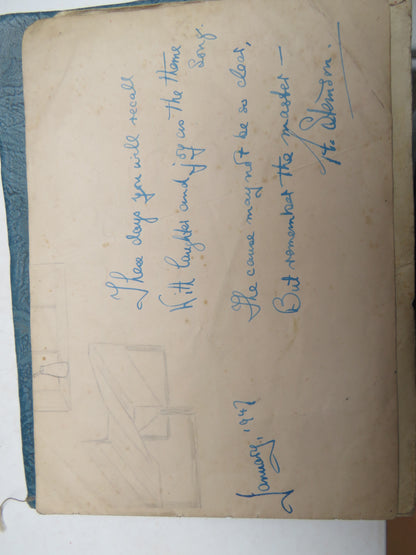 These days you will recall
With laughter and joy as the theme
song.
The cause may not be so clear,
But remember the master —
January, 194